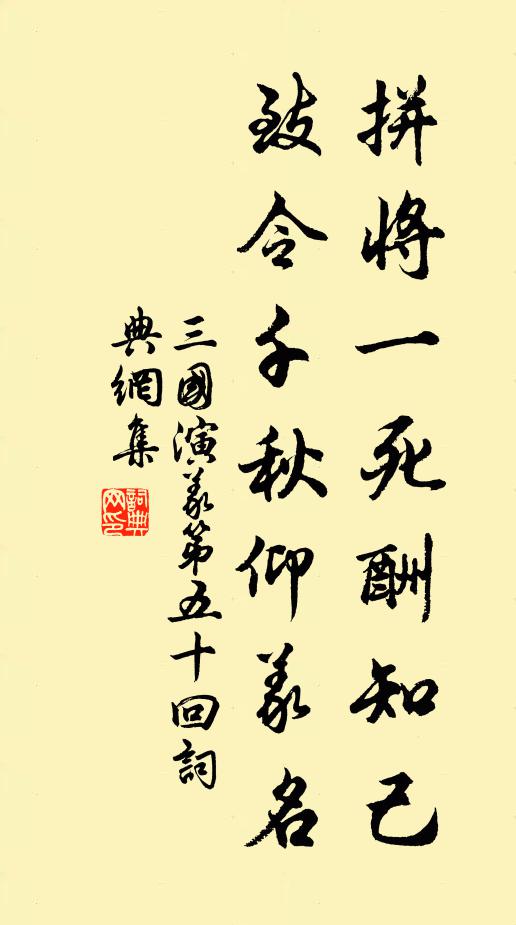 拼將一死酬知己
致令千秋仰義名
三國演義第五十回詞
典網集
詞典
网印